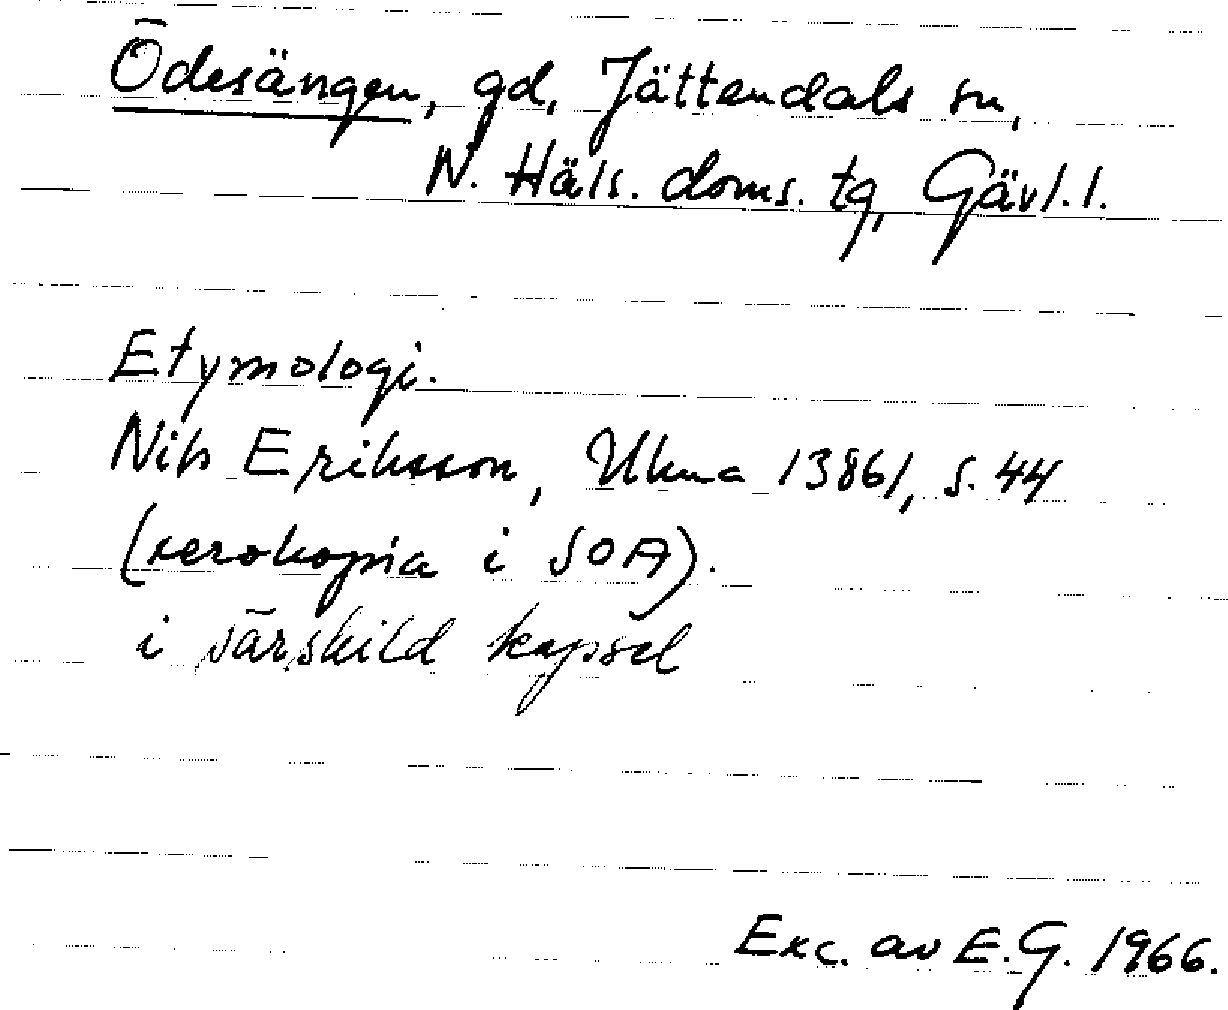 Ödesängen, gd, Jättendals sn,
N. Häls. doms. tg, Gävl. l.
Etymologi.
Nils Eriksson, Ulma 13861, s. 44
(xerokopia i SOA).
i särskild kapsel
Exc. av E.G. 1966.